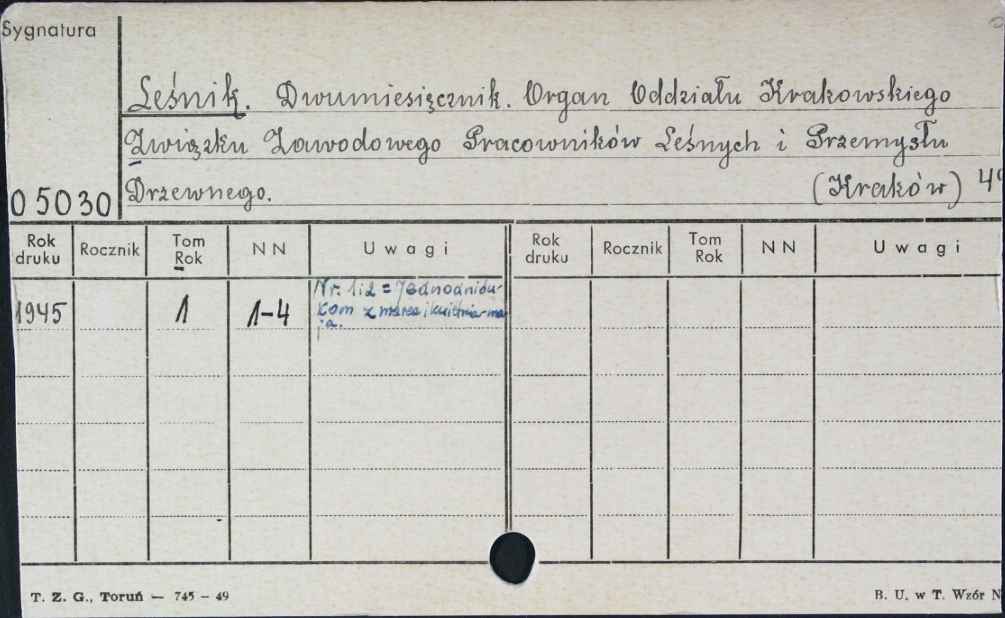 Sygnatura
Leśnik. Dwumiesięcznik. Organ Oddziału Krakowskiego
Związku Zawodowego Pracowników Leśnych i Przemysłu
Drzewnego. (Kraków) 49
05030
Rok druku Rocznik Tom Rok NN Uwagi Rok druku Rocznik Tom Rok NN Uwagi
1945 1 1-4 Nr. 1i2 = Jednodniów-
kom z marca i kwietnia-ma-
ja.
T. Z. G., Toruń — 745 – 49 B. U. w T. Wzór N